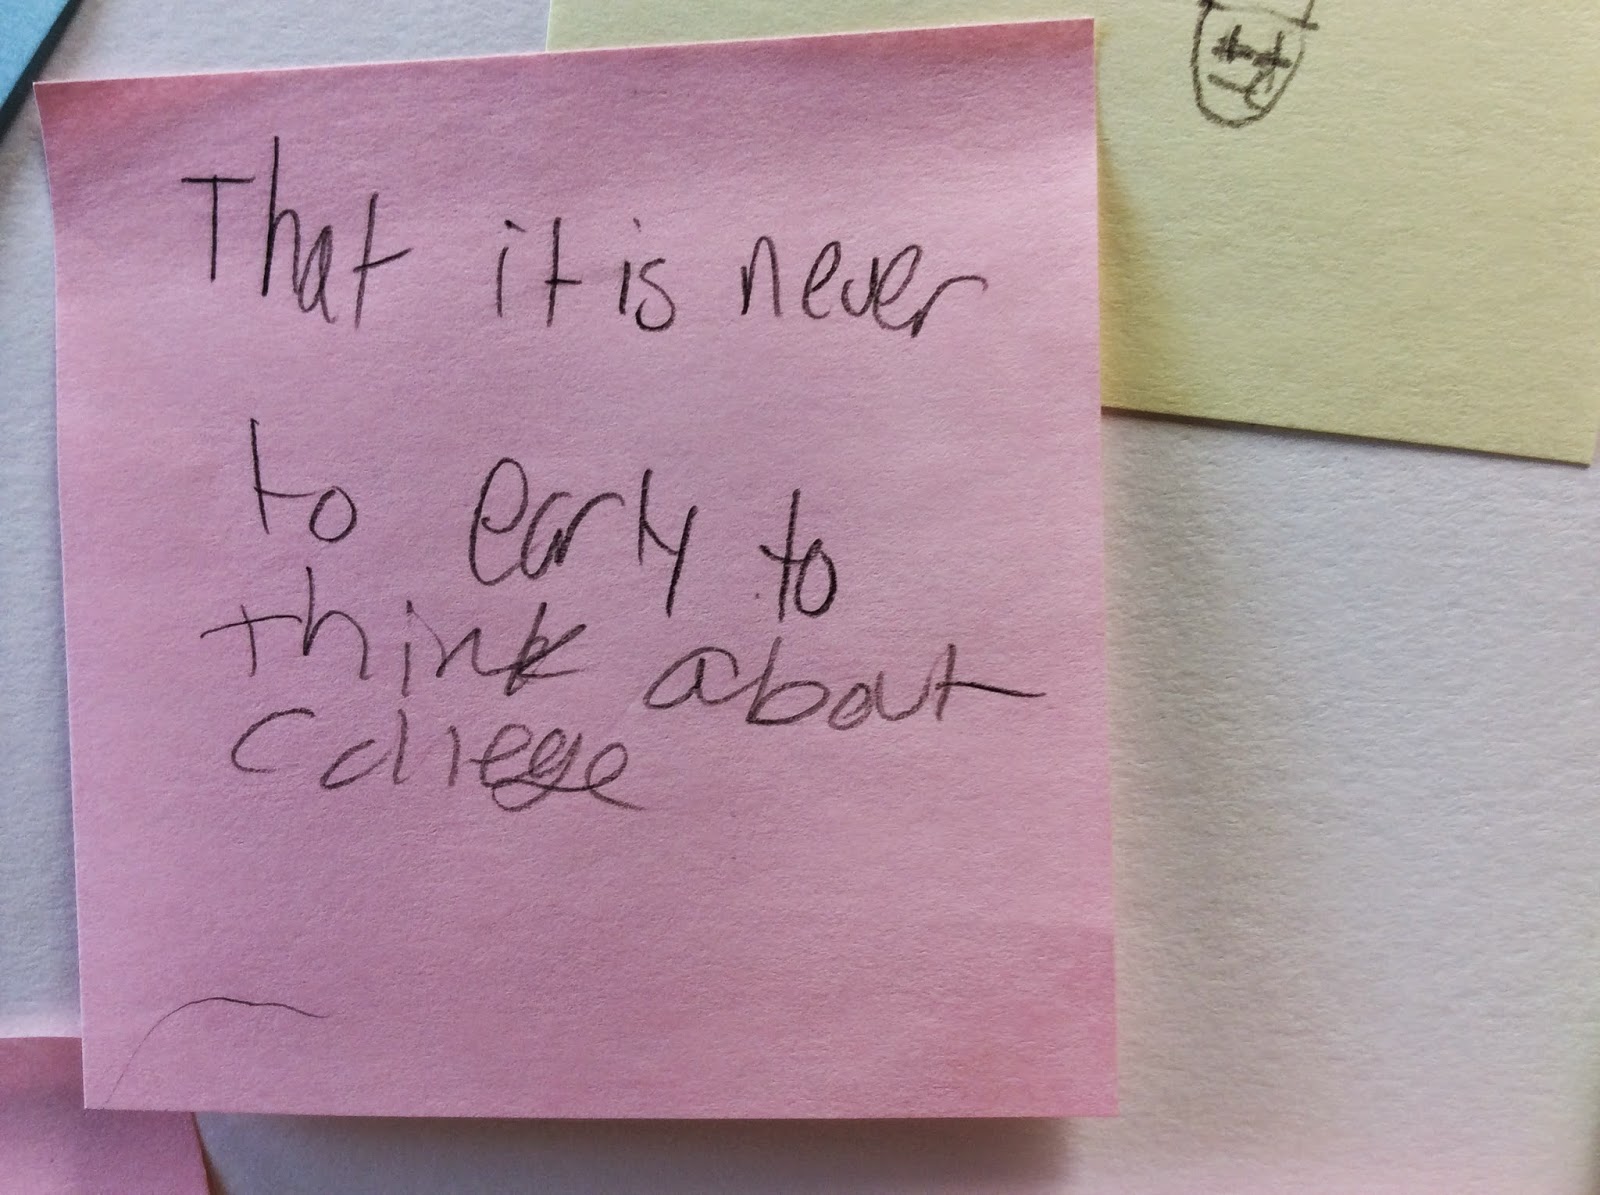 That it is never
to early to
think about
college